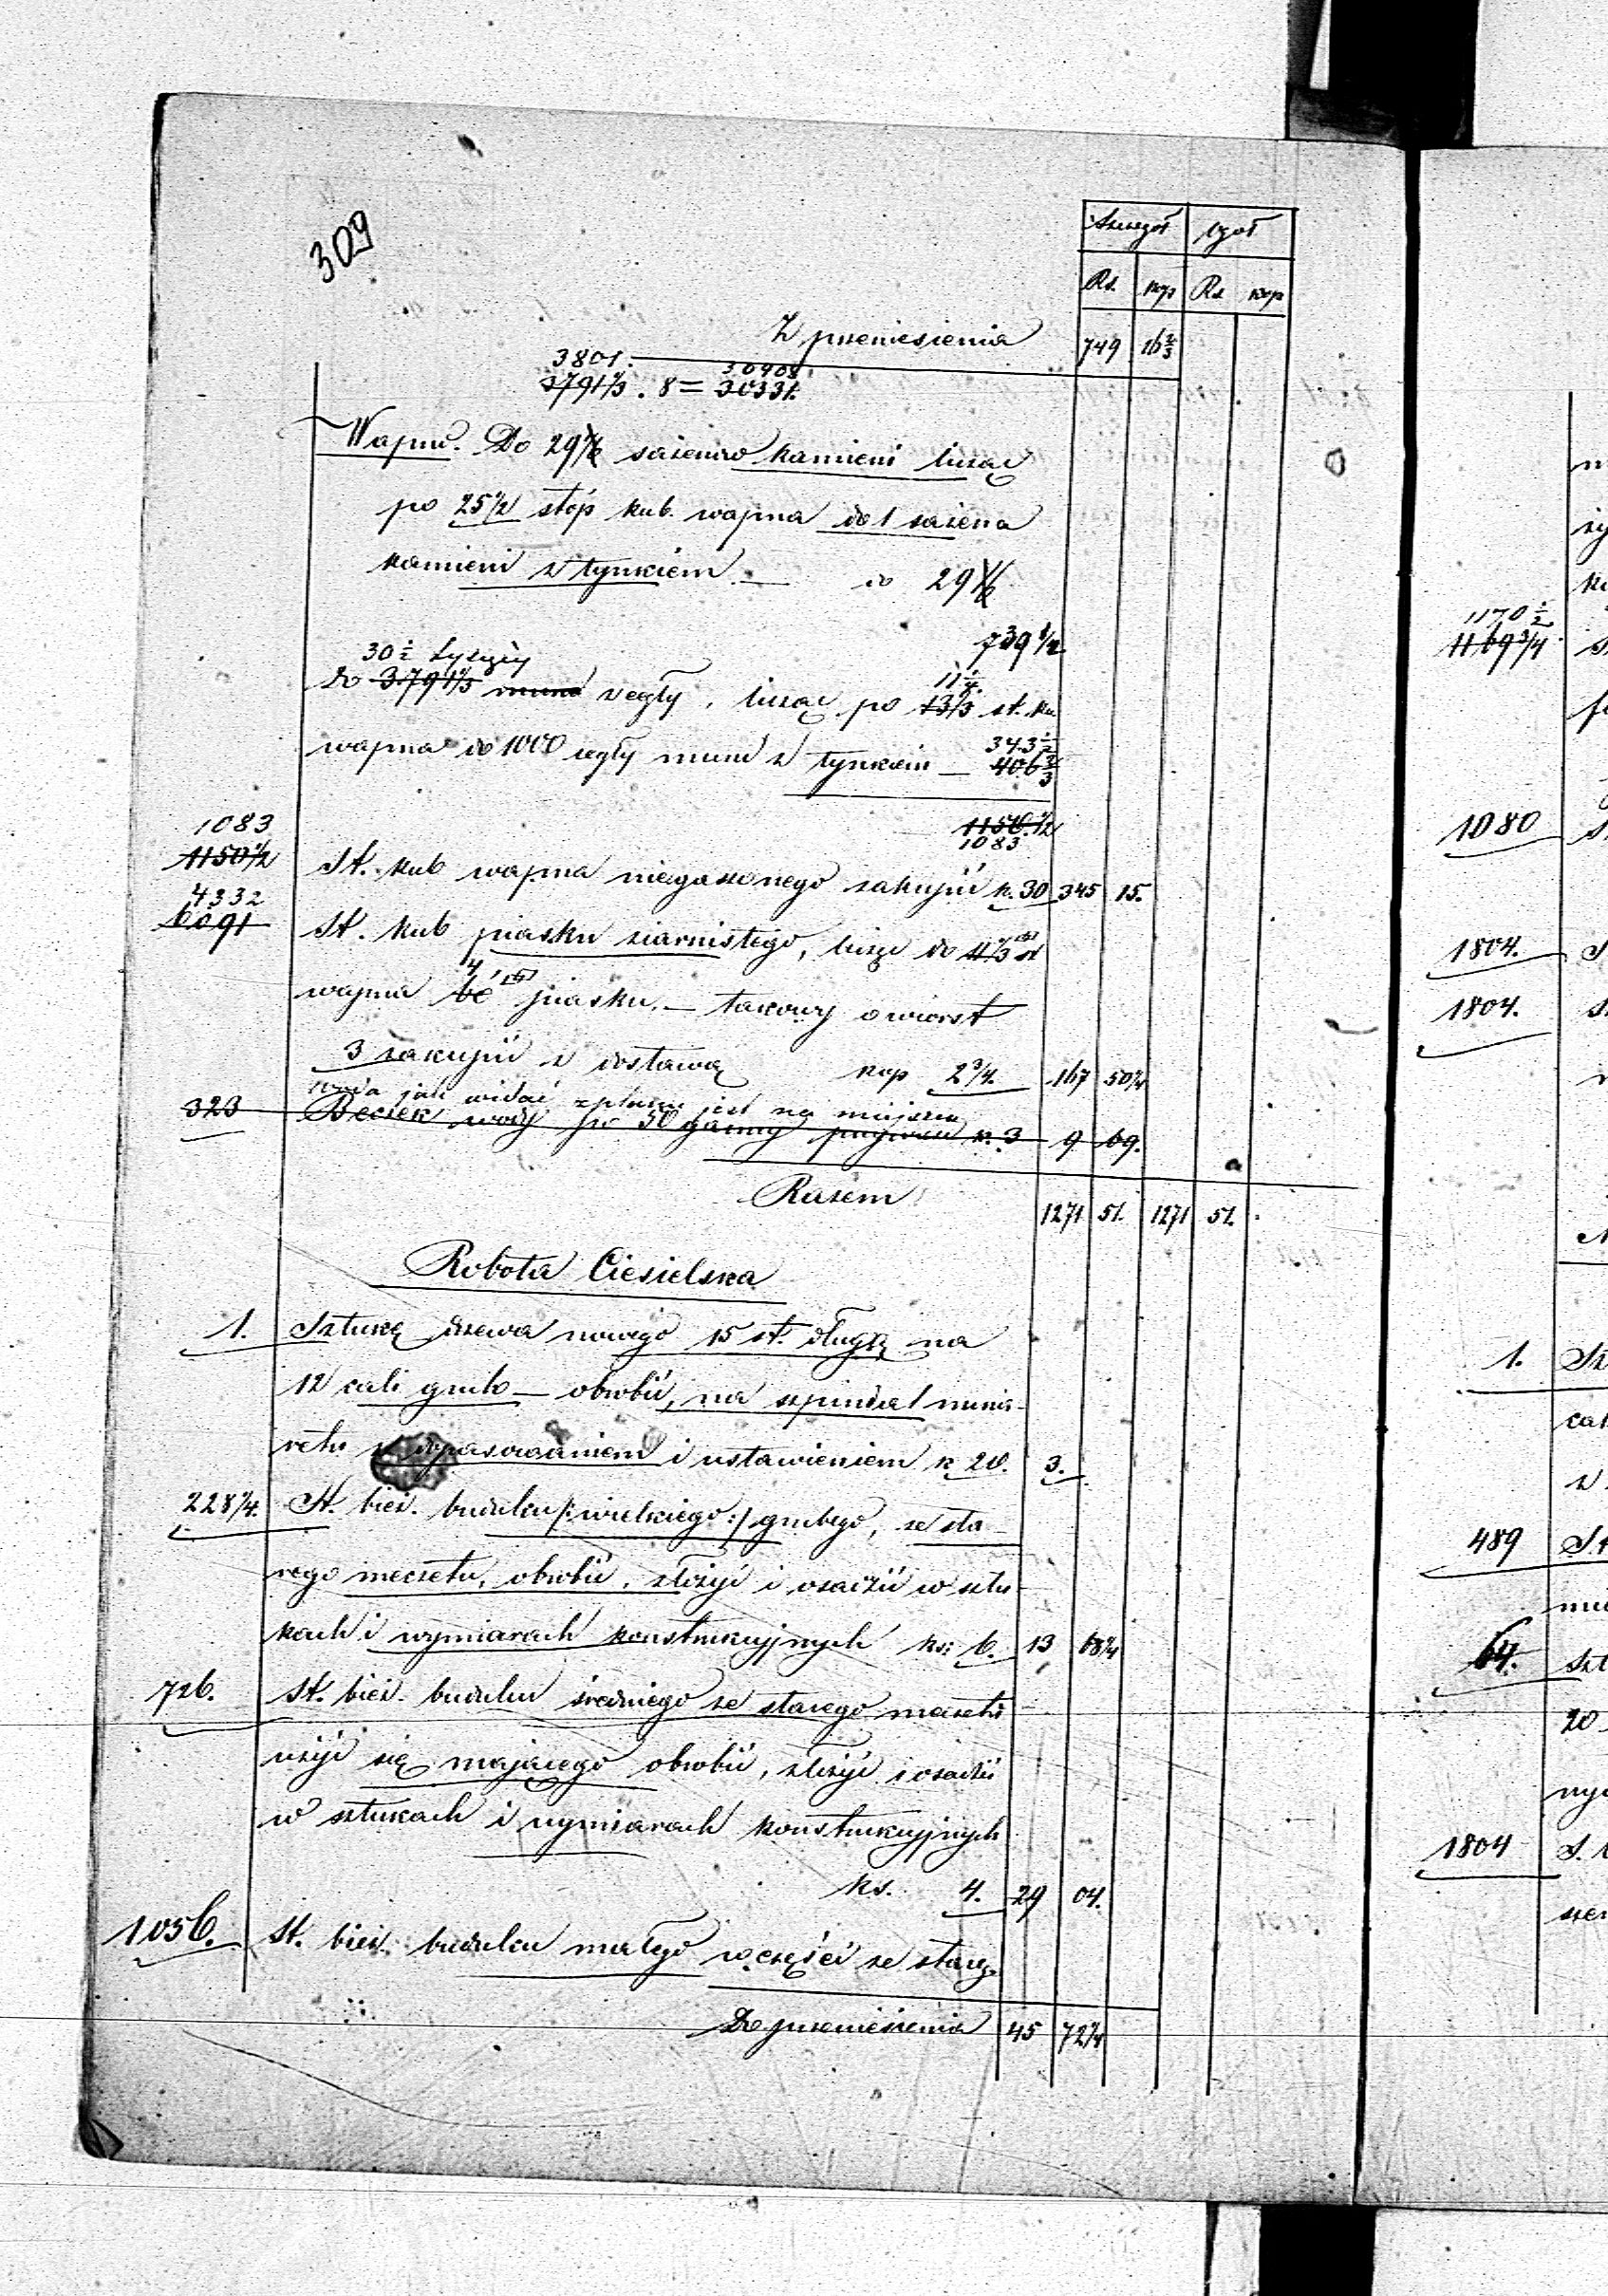 309
Szczegół Ogół
Rs. kop Rs kop
Z przeniesienia 749 16 2/3
3801. 30408
3791 2/3 . 8 = 30331.
Wapno. Do 29 sażenów kamieni licząc
po 25 1/2 stóp kub. wapna do 1 sażena
kamieni z tynkiem — do 29
739 1/2
30 1/2 tysięcy 11 1/4
Do 3791 2/3 cegły, licząc po 13 1/3 st. ku.
343 1/2
wapna do 1000 cegły muru z tynkiem — 406 2/3
1083 1150 1/2
1083
1150 1/2 St. kub wapna niegaszonego zakupić k. 30 345 15.
4332
6091 St. kub piasku ziarnistego, licząc do
4
wapna piasku. — takowy o wiorst
3 zakupić z dostawą kop 2 3/4. 167 50 1/4
woda jak widać z planu jest na miejscu
323 Beczek wody po 50 garncy k. 3 9 69.
Razem 1271 51. 1271 51.
Robota Ciesielska
1. Sztukę drzewa nowego 15 st. długą na
12 cali grubo — obrobić, na szpindal mina-
retu z dopasowaniem i ustawieniem k 20. 3.
228 1/4. St. bież. budulcu /: wielkiego :/ grubego, ze sta-
rego meczetu, obrobić, złożyć i osadzić w sztu-
kach i wymiarach konstrukcyjnych ks: 6. 13 68 1/4
726. St. bież. budulcu średniego ze starego meczetu
użyć się mającego obrobić, złożyć i osadzić
w sztukach i wymiarach konstrukcyjnych
ks. 4. 29 04.
1056. St. bież. budulcu małego w części ze stareg.
Do przeniesienia 45 72 1/4
1170 1/2
1169 3/4
1080
1804.
1804.
1.
489
64.
20
1804